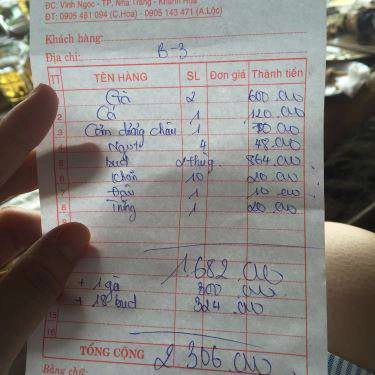 ĐC: Vĩnh Ngọc - TP. Nha Trang - Khánh Hòa
ĐT: 0905 481 094 (C.Hoa) - 0905 143 471 (A.Lộc)
Khách hàng:
B-3
Địa chỉ:
TT TÊN HÀNG SL Đơn giá Thành tiền
Gà 2 600.000
2 Cá 1 120.000
3 1
Nước 4 48.000
bud 2 thùng 864.000
6 Khăn 10 20.000
7 Đậu 1 10.000
8 Trứng 1 20.000
9
1.682.000
+ 1 gà 300.000
+ 18 bud 324.000
15
16
TỔNG CỘNG 2.306.000
Bằng chữ: